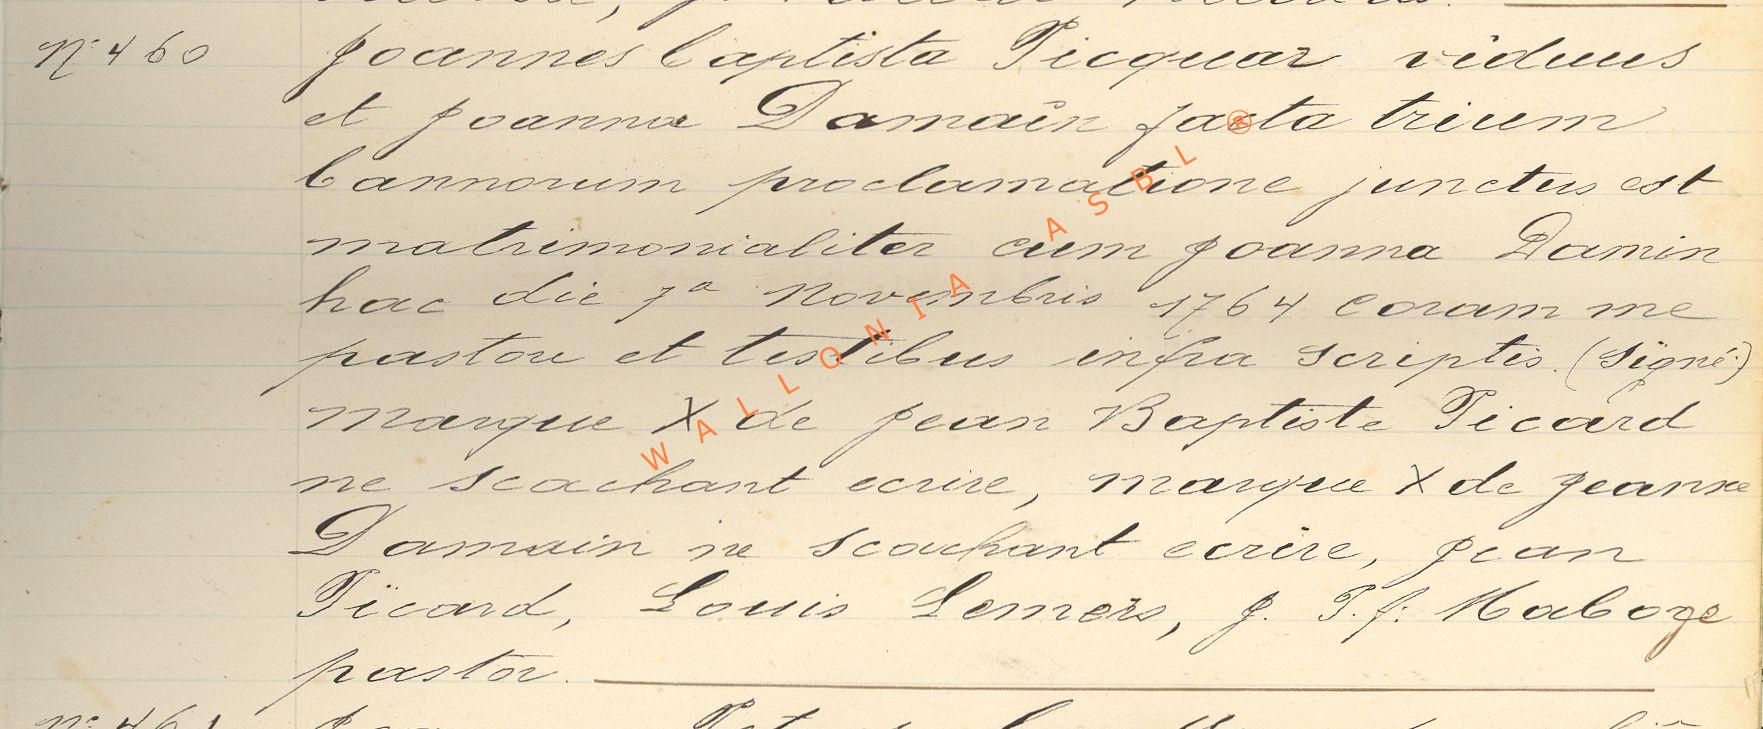 N° 460 Joannes baptista Picquar viduus
et Joanna Damain facta trium
bannorum proclamatione junctus est
matrimonialiter cum Joanna Damin
hac die 7a Novembris 1764 coram me
pastore et testibus infra scriptis. (Signé)
marque X de Jean Baptiste Picard
ne scachant ecrire, marque X de Jeanne
Damain ne scachant ecrire, Jean
Picard, Louis Lemers, J. P. J. Maboge
pastor.
N° 461
WALLONIA ASBL ®